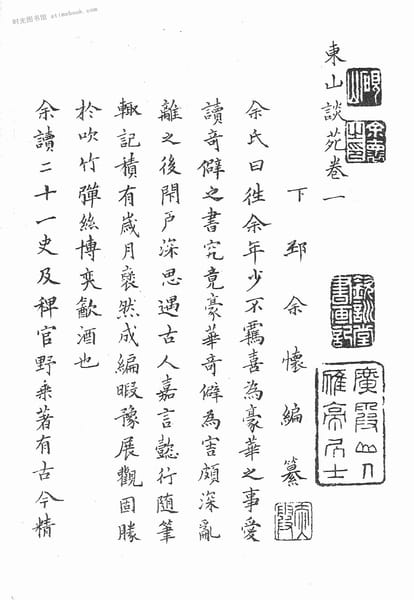 时光图书馆 atimebook.com
東山談苑卷一
余懷之印
下邳余懷編纂
余氏曰往余年少不羈喜為豪華之事愛
讀奇僻之書究竟豪華奇僻為害頗深亂
離之後閉户深思遇古人嘉言懿行随筆
輙記積有歲月裒然成編暇豫展觀固勝
於吹竹彈絲博奕㱃酒也
余讀二十一史及稗官野乘著有古今精